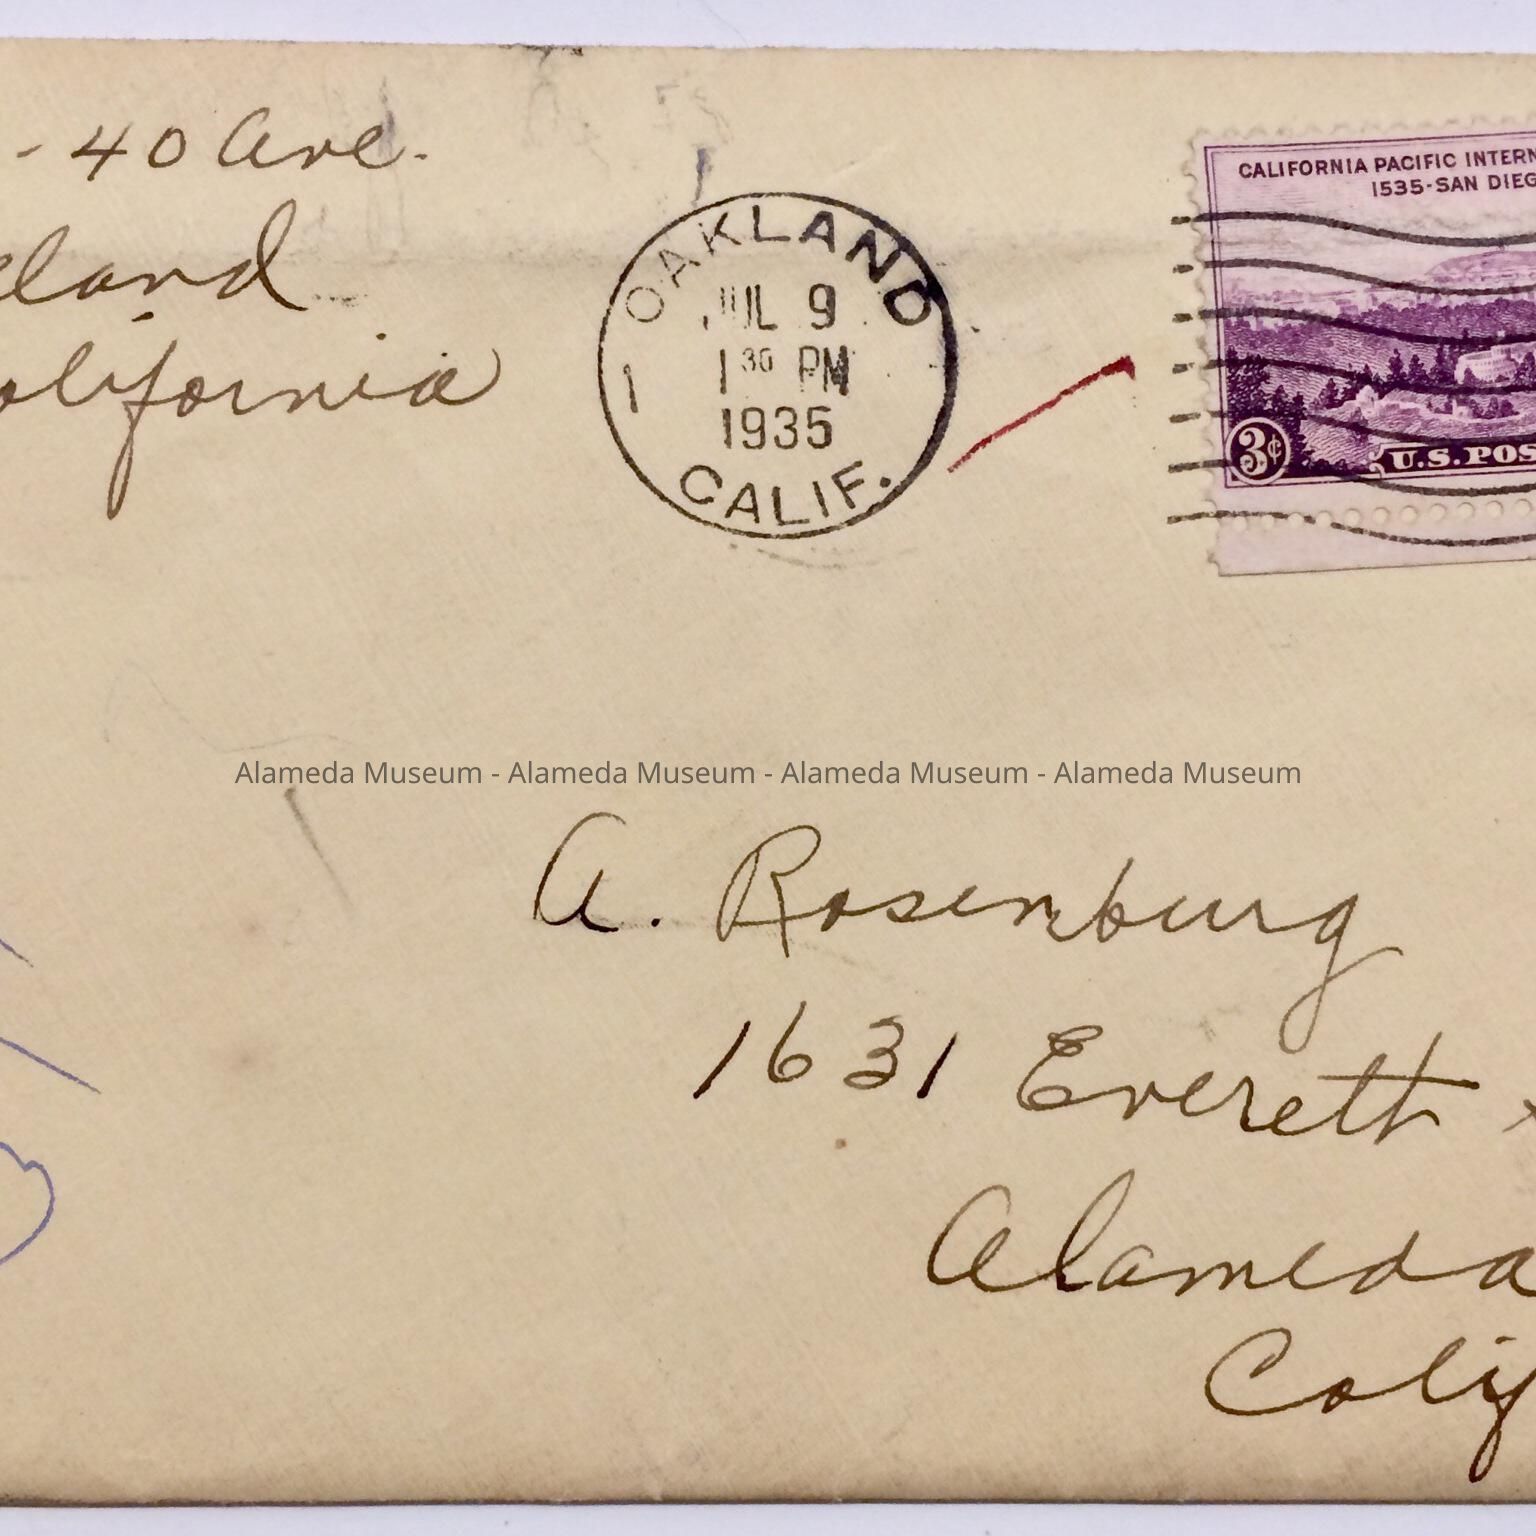 - 40 Ave.
land
alifornia
OAKLAND
JUL 9
1 30 PM
1
1935
CALIF.
CALIFORNIA PACIFIC INTERN
1535-SAN DIEG
3¢
U.S. POS
Alameda Museum - Alameda Museum - Alameda Museum - Alameda Museum
A. Rosenburg
1631 Everett
Alameda
Calif